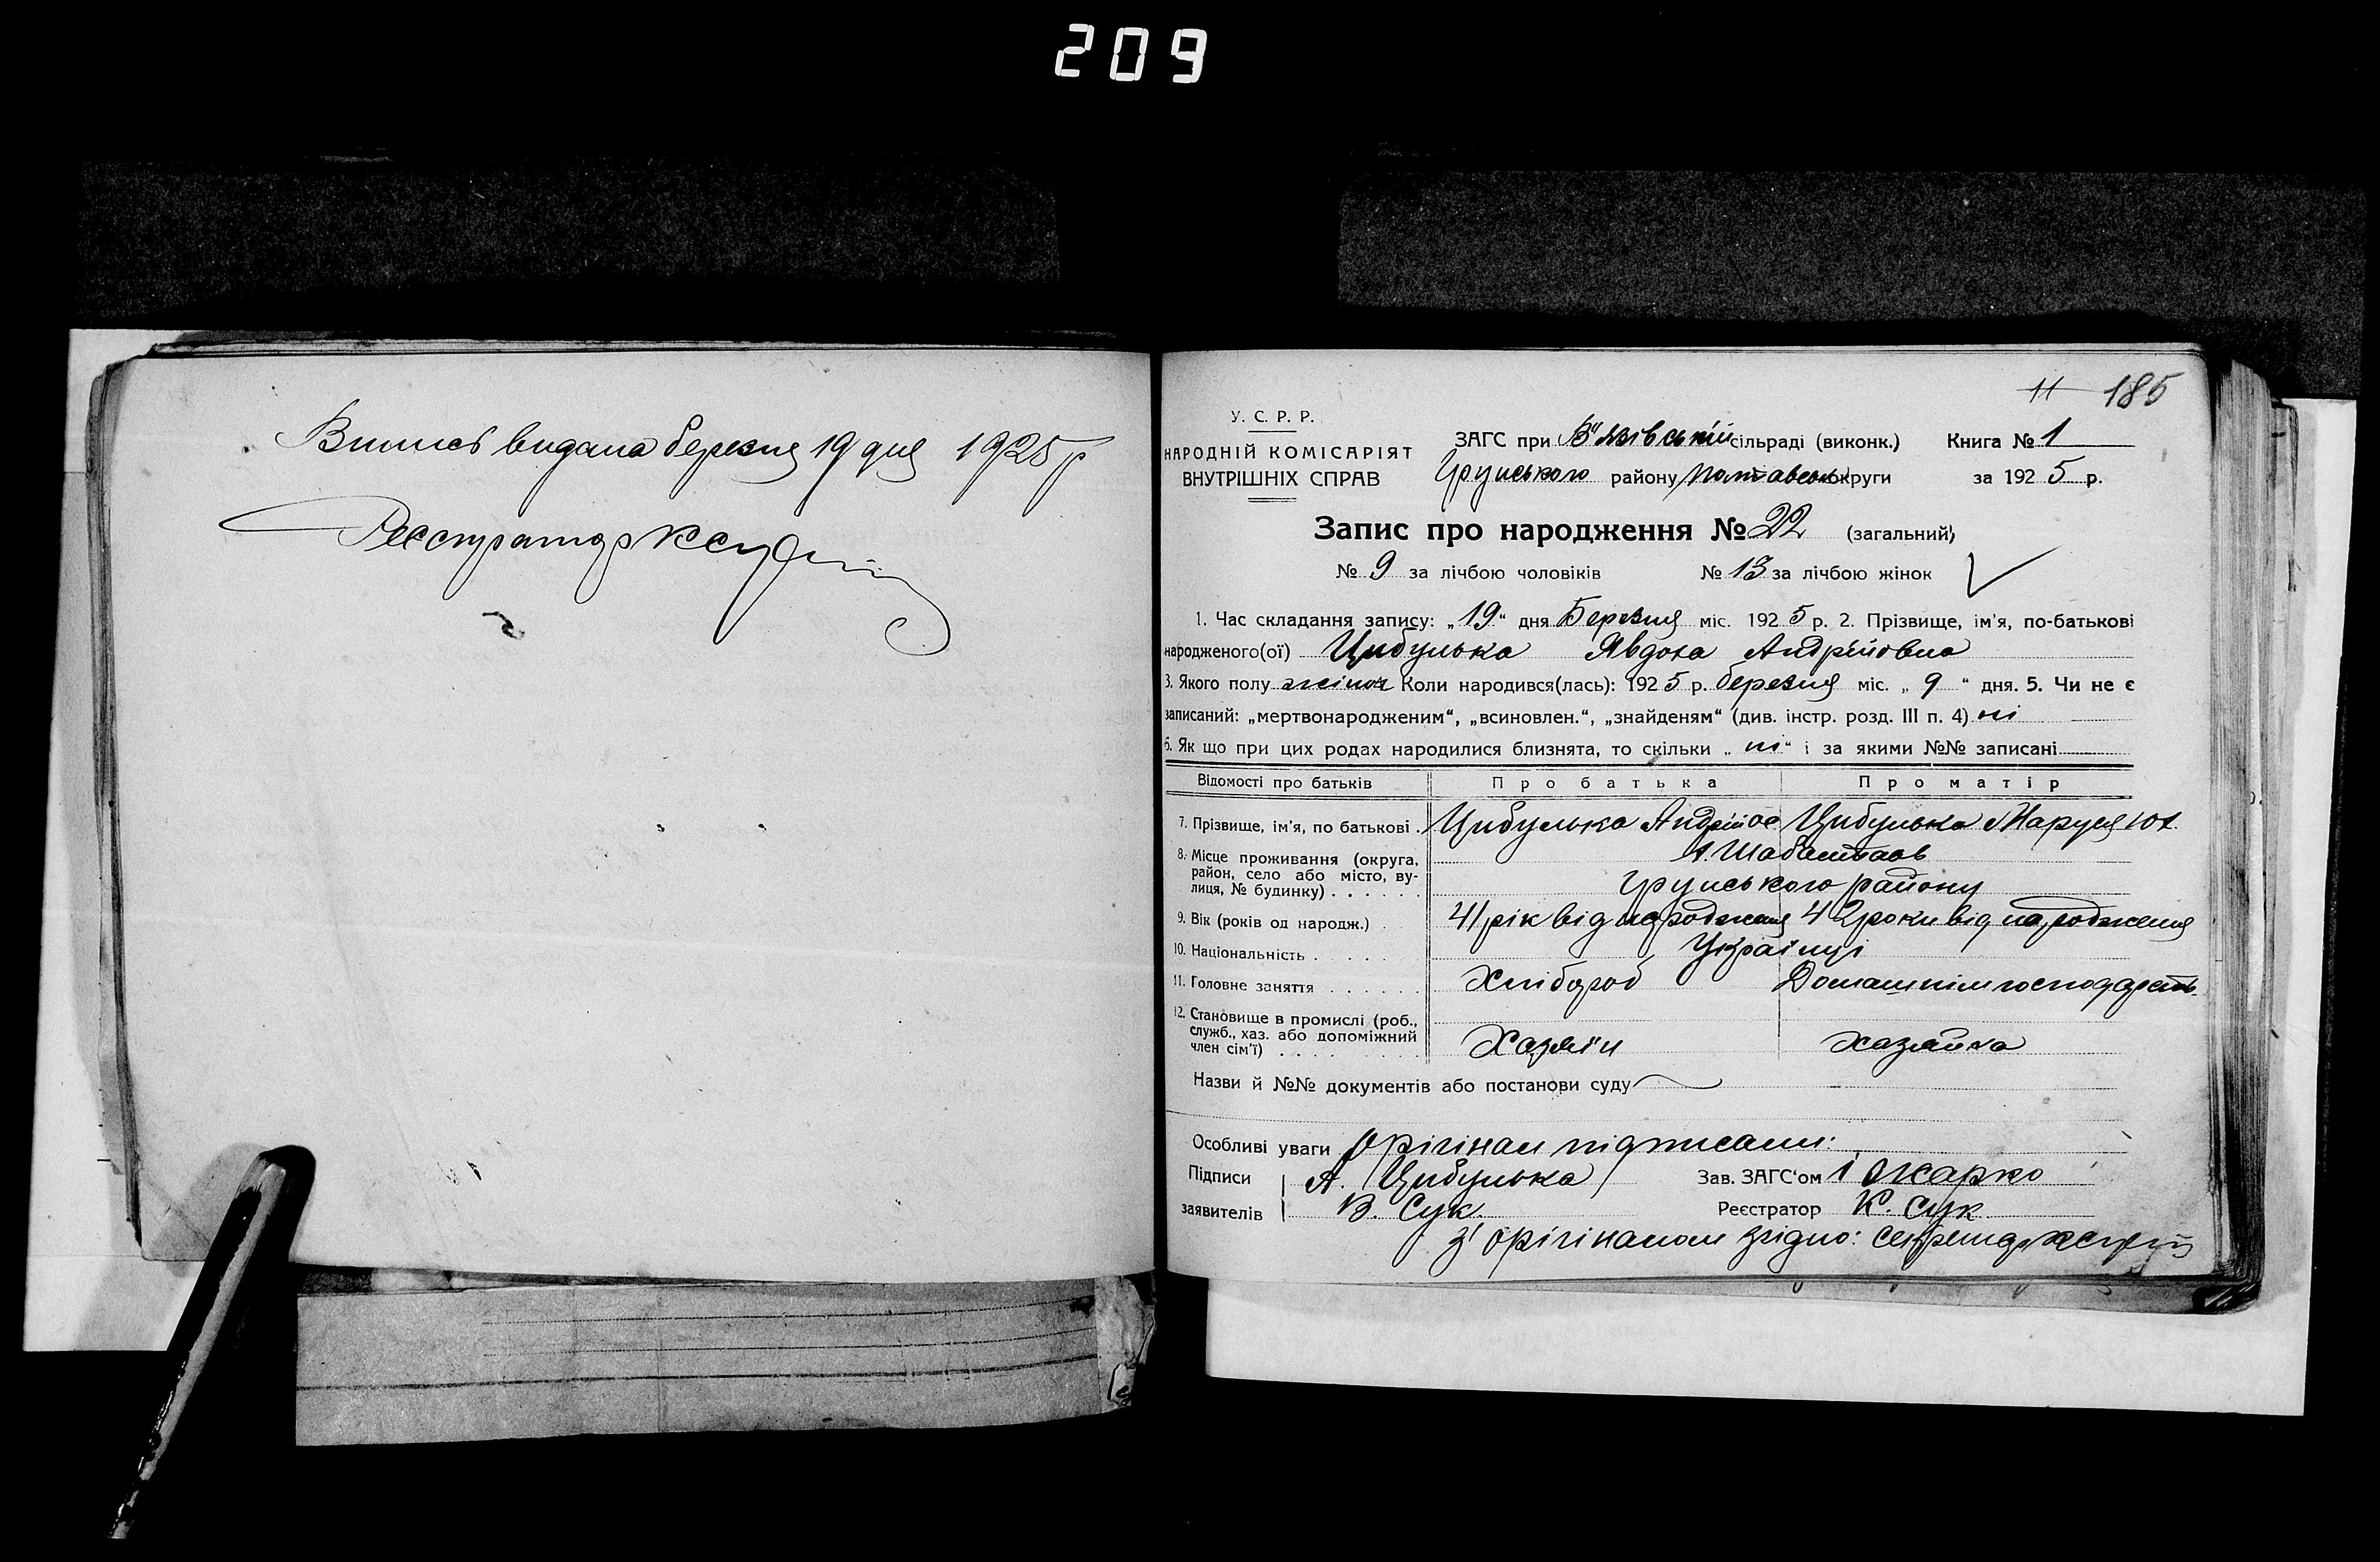 209
Випись видана березня 19 дня 1925 р
Реєстратор КСук
11 185
У. С. Р. Р.
НАРОДНІЙ КОМІСАРІЯТ
ВНУТРІШНІХ СПРАВ
ЗАГС при В'язівській сільраді (виконк.) Книга № 1
Грунського району Полтавськ округи за 1925 р.
Запис про народження № 22 (загальний)
№ 9 за лічбою чоловіків № 13 за лічбою жінок
1. Час складання запису: „19“ дня Березня міс. 1925 р. 2. Прізвище, ім'я, по-батькові
народженого(ої) Цибулька Явдоха Андрійовна
3. Якого полу жіноч Коли народився(лась): 1925 р. березня міс. „9“ дня. 5. Чи не є
записаний: „мертвонародженим“, „всиновлен.“, „знайденям“ (див. інстр. розд. III п. 4) ні
6. Як що при цих родах народилися близнята, то скільки „ні“ і за якими №№ записані
Відомості про батьків Про батька Про матір
7. Прізвище, ім'я, по батькові . Цибулька Андрій Ос Цибулька Маруся
8. Місце проживання (округа,
район, село або місто, ву-
лиця, № будинку) . . . . . .
Грунського району
9. Вік (років од народж.) . 41 рік від народження 42 роки від народження
10. Національність . . . . . . Українці
11. Головне заняття . . . . . . Хлібороб Домашнім господарств.
12. Становище в промислі (роб.,
служб., хаз. або допоміжний
член сім'ї) . . . . . . Хазяїн хазяйка
Назви й №№ документів або постанови суду
Особливі уваги Орігінал підписали:
Підписи А. Цибулька Зав. ЗАГС'ом Ожарко
заявителів В. Сук. Реєстратор К. Сук
З орігіналом згідно: секретар КСук